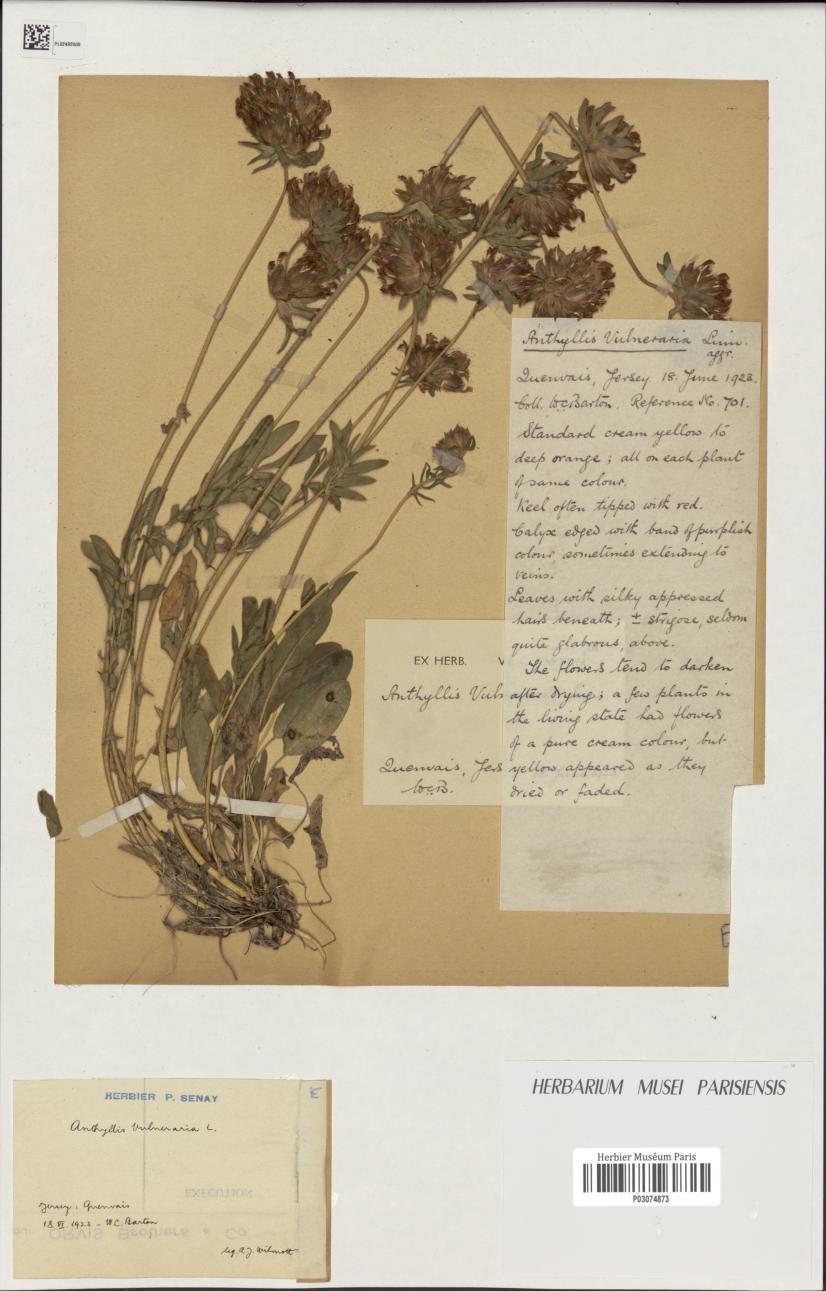 Anthyllis Vulneraria Linn.
aggr.
Quenvais, Jersey. 18. June 1923.
Coll. W.C. Barton. Reference No. 701.
Standard cream yellow to
deep orange; all on each plant
of same colour.
Keel often tipped with red.
Calyx edged with band of purplish
colour, sometimes extending to
veins.
Leaves with silky appressed
hairs beneath; ± strigose, seldom
quite glabrous, above.
The flowers tend to darken
after drying; a few plants in
the living state had flowers
of a pure cream colour, but
yellow appeared as they
dried or faded.
EX HERB. V
Anthyllis Vuln
Quenvais, Jers
W.C.B.
E
HERBIER P. SENAY
E
Anthyllis Vulneraria L.
Jersey: Quenvais
18.VI.1923 - W.C. Barton
leg. A.J. Wilmott
EXECUTION
ORVIS Brothers & Co
HERBARIUM MUSEI PARISIENSIS
Herbier Muséum Paris
P03074873